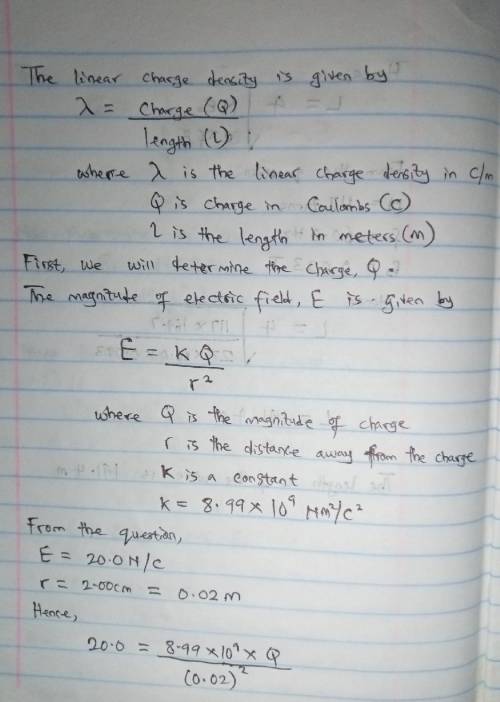 The linear charge density is given by
λ = Charge (Q)
length (L)
where λ is the linear charge density in C/m
Q is charge in Coulombs (C)
L is the length in meters (m)
First, we will determine the charge, Q.
The magnitude of electric field, E is given by
E = K Q
r²
where Q is the magnitude of charge
r is the distance away from the charge
K is a constant
K = 8.99 × 10⁹ Nm²/C²
From the question,
E = 20.0 N/C
r = 2.00cm = 0.02 m
Hence,
20.0 = 8.99 × 10⁹ × Q
(0.02)²